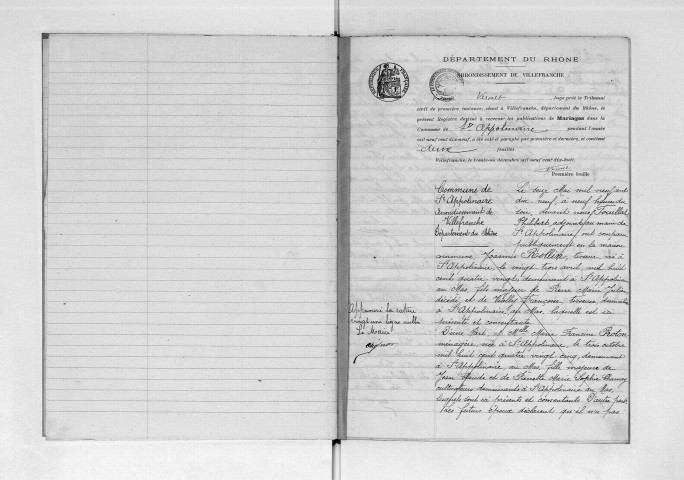 DÉPARTEMENT DU RHÔNE
ARRONDISSEMENT DE VILLEFRANCHE
Vernet Juge près le Tribunal
civil de première instance, séant à Villefranche, département du Rhône,
le présent Registre destiné à recevoir les publications de Mariages dans la
Commune de St Appolinaire pendant l'année
mil neuf cent dix-neuf, a été coté et paraphé par première et dernière, et contient
deux feuillets.
Villefranche, le trente-un décembre mil neuf cent dix-huit.
Première feuille
Commune de
St Appolinaire
Arrondissement de
Villefranche
Département du Rhône
Le seize Mai mil neuf cent
dix neuf, à neuf heures du
soir, devant nous
Philibert, adjoint au maire de
St Appolinaire, ont comparu
publiquement en la maison
commune, Joannès Rollin, tisseur, né à
St Appolinaire le vingt trois avril mil huit
cent quatre vingt, demeurant à St Appolin.
au Mas, fils majeur de Pierre Marie
décédé, et de Françoise, tisseuse,
à St Appolinaire, au Mas, laquelle est ici
présente et consentante
D'une part, et Melle Marie Francine
ménagère, née à St Appolinaire, le trois octobre
mil huit cent quatre vingt cinq, demeurant
à St Appolinaire, au Mas, fille majeure de
Jean Claude et de Pierrette Marie Sophie
cultivateurs demeurants à St Appolinaire au Mas,
lesquels sont ici présents et consentants D'autre part
Les futurs époux déclarent qu'il n'a pas
Approuvé la rature
vingt une ligne nulle
Le Maire